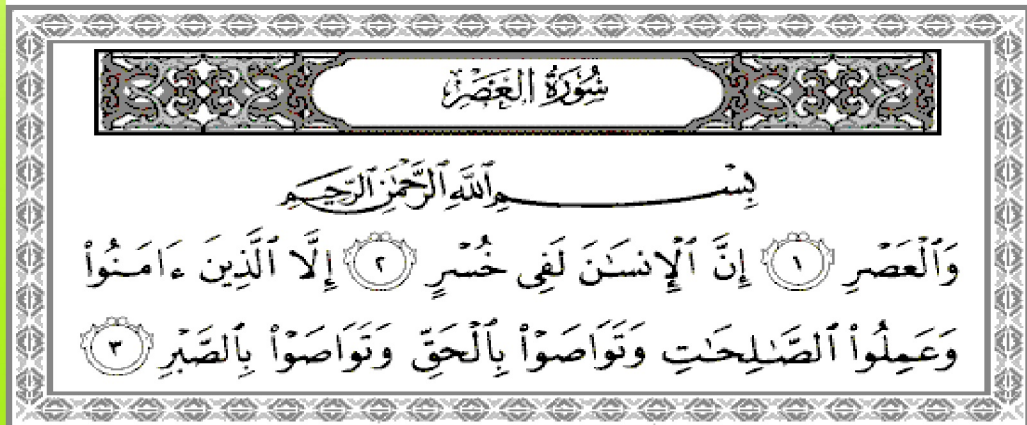 سُورَةُ العَصْرِ
بِسْمِ ٱللَّهِ ٱلرَّحْمَٰنِ ٱلرَّحِيمِ
وَٱلْعَصْرِ ١ إِنَّ ٱلْإِنسَٰنَ لَفِى خُسْرٍ ٢ إِلَّا ٱلَّذِينَ ءَامَنُوا۟
وَعَمِلُوا۟ ٱلصَّٰلِحَٰتِ وَتَوَاصَوْا۟ بِٱلْحَقِّ وَتَوَاصَوْا۟ بِٱلصَّبْرِ ٣